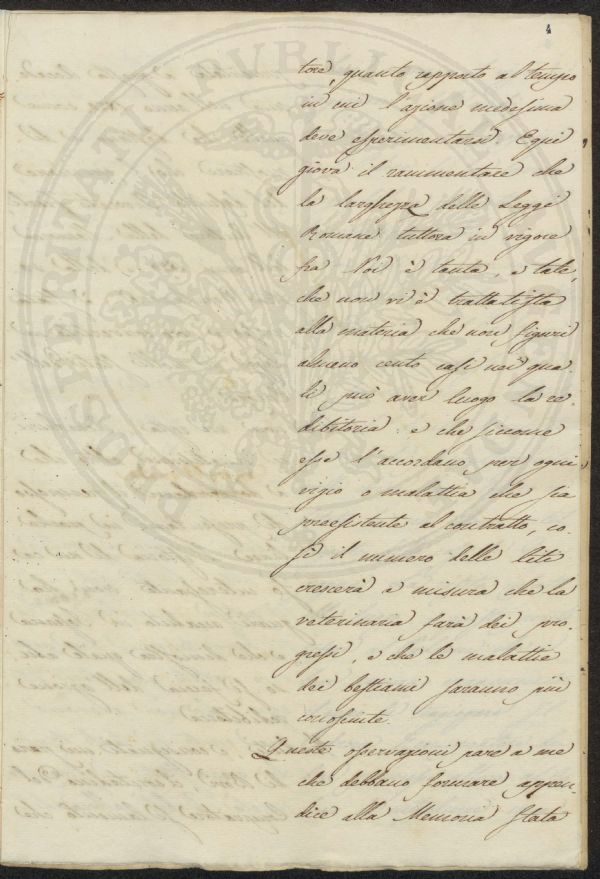 4
tore, quanto rapporto al tempo
in cui l'azione medesima
deve esperimentarsi. E qui
giova il rammentare che
la larghezza delle Leggi
Romane tuttora in vigore
fra Noi è tanta, e tale,
che non vi è trattatista
alla materia che non figuri
almeno cento casi nei qua-
li può aver luogo la re-
dibitoria: e che siccome
esse l'accordano per ogni
vizio o malattia che sia
preesistente al contratto, co-
sì il numero delle liti
crescerà a misura che la
veterinaria farà dei pro-
gressi, e che le malattie
dei bestiami saranno più
conosciute.
Queste osservazioni pare a me
che debbano formare appen-
dice alla Memoria stata